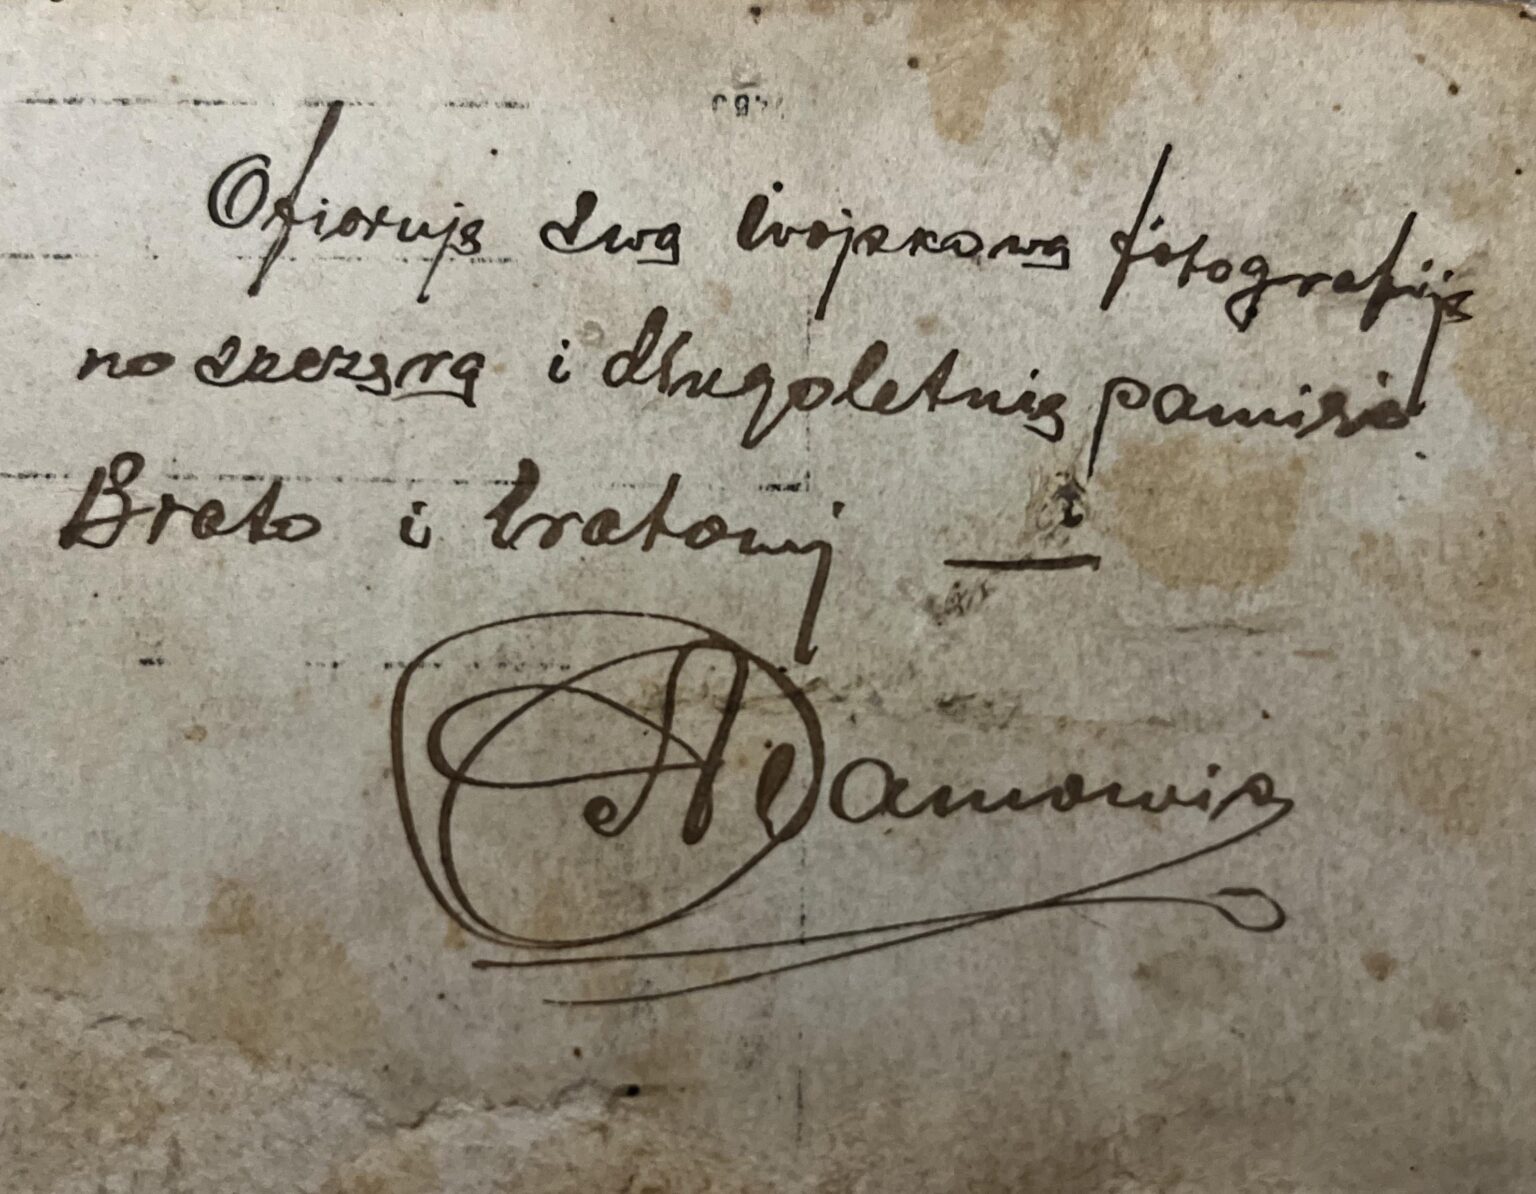 Ofiaruję swą wojskową fotografiję
na szczerą i długoletnią pamięć
Brata i bratowej
Adamowicz